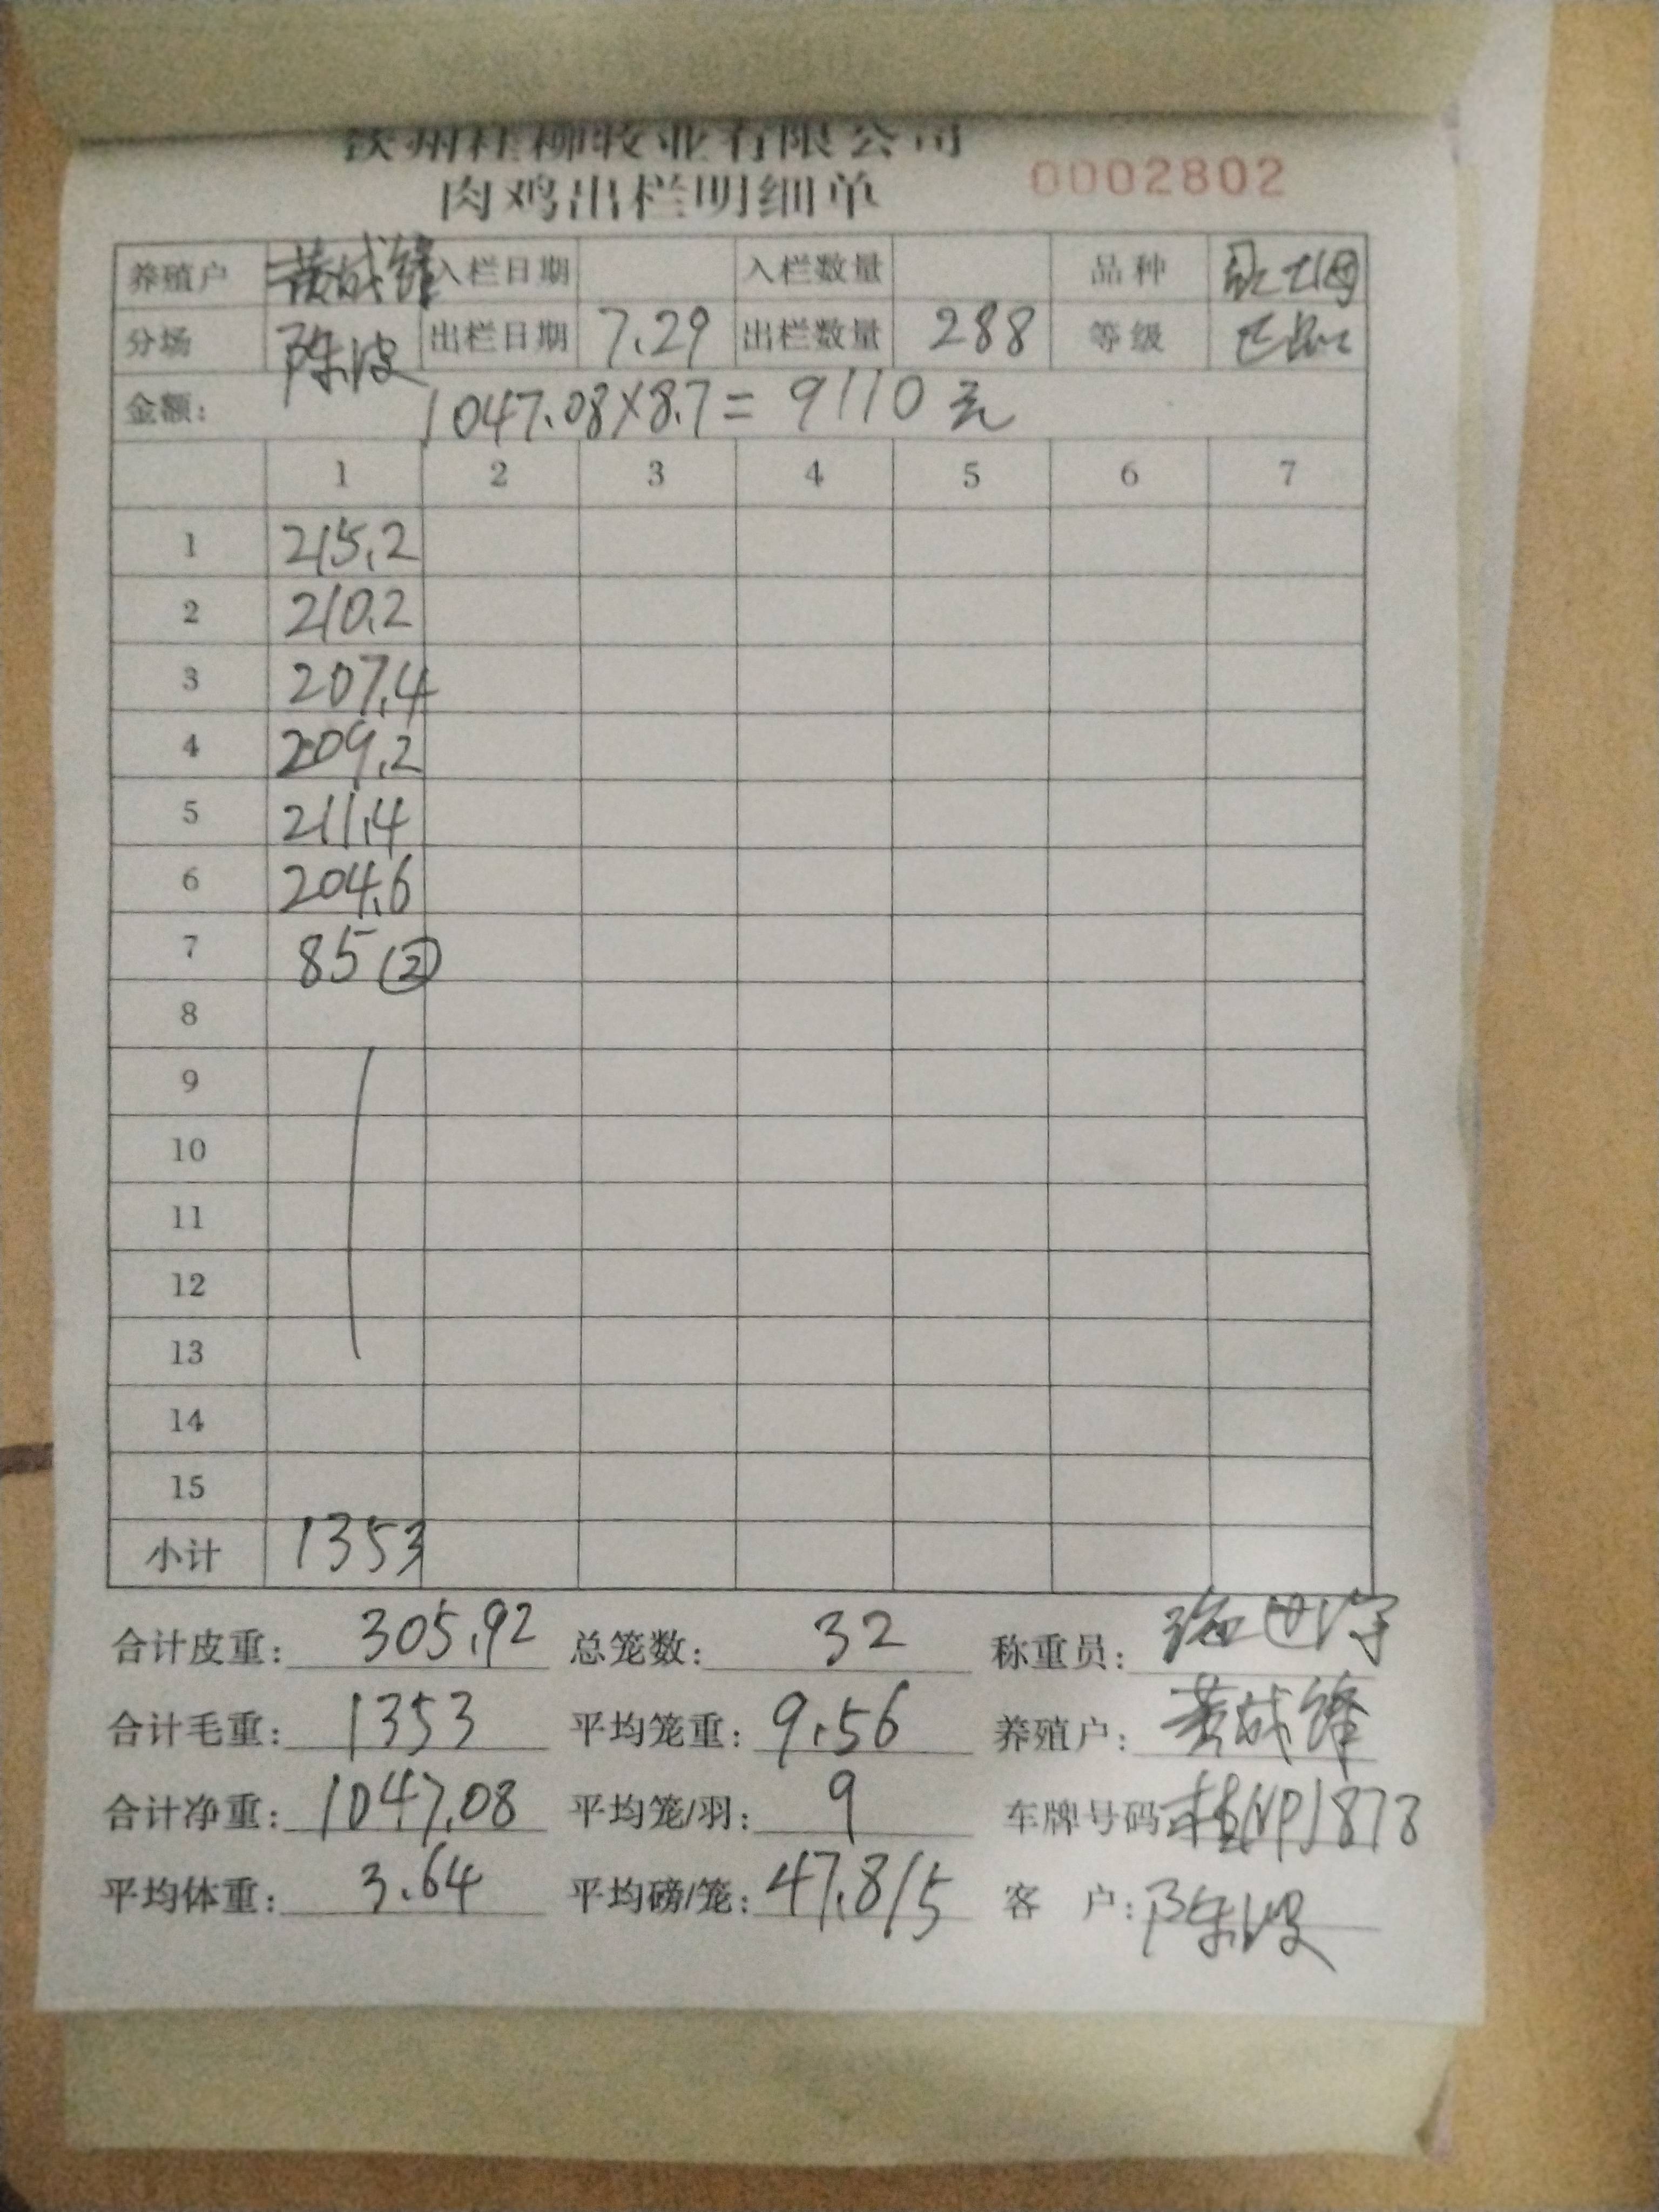 钦州桂柳牧业有限公司
肉鸡出栏明细单 0002802
养殖户 黄成锋 入栏日期 入栏数量 品种
分场 陈波 出栏日期 7.29 出栏数量 288 等级 正品
金额: 1047.08×8.7=9110元
1 2 3 4 5 6 7
1 215.2
2 210.2
3 207.4
4 209.2
5 211.4
6 204.6
7 85②
8
9
10
11
12
13
14
15
小计 1353
合计皮重: 305.92 总笼数: 32 称重员:
合计毛重: 1353 平均笼重: 9.56 养殖户: 黄成锋
合计净重: 1047.08 平均笼/羽: 9 车牌号码
平均体重: 3.64 平均磅/笼: 47.8/5 客 户: 陈波